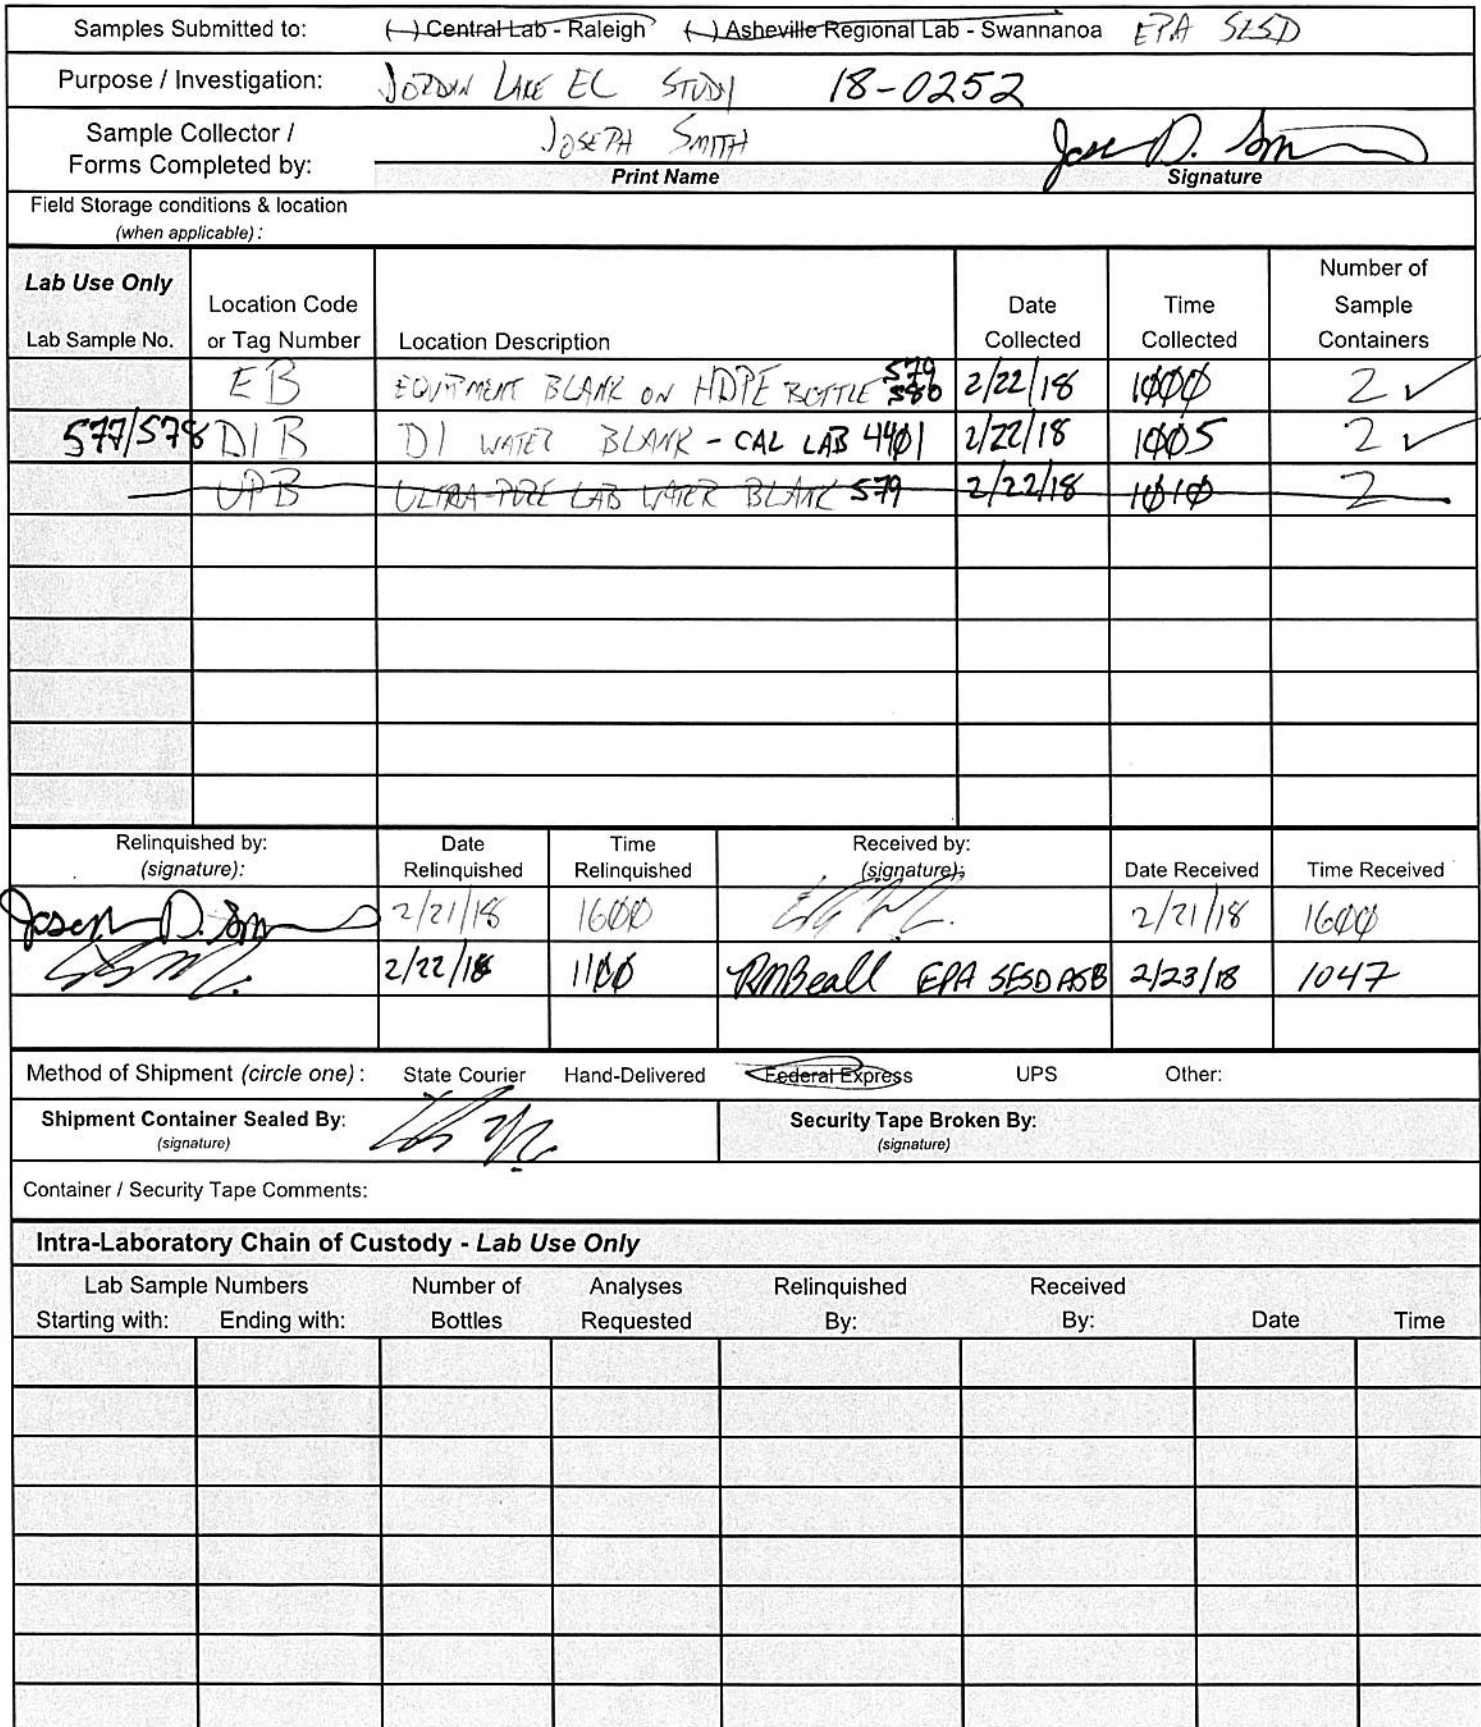 Samples Submitted to: ( ) Central Lab - Raleigh ( ) Asheville Regional Lab - Swannanoa EPA SESD
Purpose / Investigation: JORDAN LAKE EC STUDY 18-0252
Sample Collector / Forms Completed by: JOSEPH SMITH Joseph D. Sm
Print Name Signature
Field Storage conditions & location
(when applicable) :
Lab Use Only
Lab Sample No. Location Code or Tag Number Location Description Date Collected Time Collected Number of Sample Containers
EB EQUIPMENT BLANK ON HDPE BOTTLE 579 580 2/22/18 1000 2 ✓
577/578 DIB DI WATER BLANK - CAL LAB 4401 2/22/18 1005 2 ✓
UPB ULTRA-PURE LAB WATER BLANK 579 2/22/18 1010 2
Relinquished by: (signature): Date Relinquished Time Relinquished Received by: (signature): Date Received Time Received
Joseph D. Sm 2/21/18 1600 2/21/18 1600
2/22/18 1100 RMBeall EPA SESD ASB 2/23/18 1047
Method of Shipment (circle one) : State Courier Hand-Delivered Federal Express UPS Other:
Shipment Container Sealed By: (signature) Security Tape Broken By: (signature)
Container / Security Tape Comments:
Intra-Laboratory Chain of Custody - Lab Use Only
Lab Sample Numbers Number of Analyses Relinquished Received
Starting with: Ending with: Bottles Requested By: By: Date Time